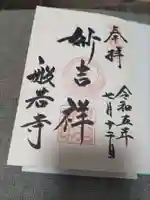 奉拝
令和五年
七月十二日
妙吉祥
般若寺